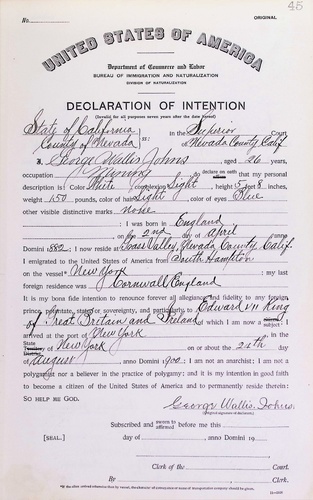 45
No.
ORIGINAL
UNITED STATES OF AMERICA
Department of Commerce and Labor
BUREAU OF IMMIGRATION AND NATURALIZATION
DIVISION OF NATURALIZATION
DECLARATION OF INTENTION
(Invalid for all purposes seven years after the date hereof)
State of California
County of Nevada ss: In the Superior Court
of Nevada County Calif
I, George Wallis Johns, aged 26 years,
occupation Mining, do declare on oath that my personal
description is: Color White, complexion Light, height 5 feet 8 inches,
weight 150 pounds, color of hair Light, color of eyes Blue
other visible distinctive marks none
I was born in England
on the 2nd day of April, anno
Domini 1882; I now reside at Grass Valley, Nevada County, Calif.
I emigrated to the United States of America from South Hampton
on the vessel* New York; my last
foreign residence was Cornwall England
It is my bona fide intention to renounce forever all allegiance and fidelity to any foreign
prince, potentate, state, or sovereignty, and particularly to Edward VII King
of Great Britain and Ireland, of which I am now a subject; I
arrived at the port of New York, in the
State of New York on or about the 24th day
of August, anno Domini 190; I am not an anarchist; I am not a
polygamist nor a believer in the practice of polygamy; and it is my intention in good faith
to become a citizen of the United States of America and to permanently reside therein:
SO HELP ME GOD.
George Wallis Johns
(Original signature of declarant.)
Subscribed and sworn to affirmed before me this
[SEAL.] day of, anno Domini 19
Clerk of the Court.
By, Clerk.
*If the alien arrived otherwise than by vessel, the character of conveyance or name of transportation company should be given.